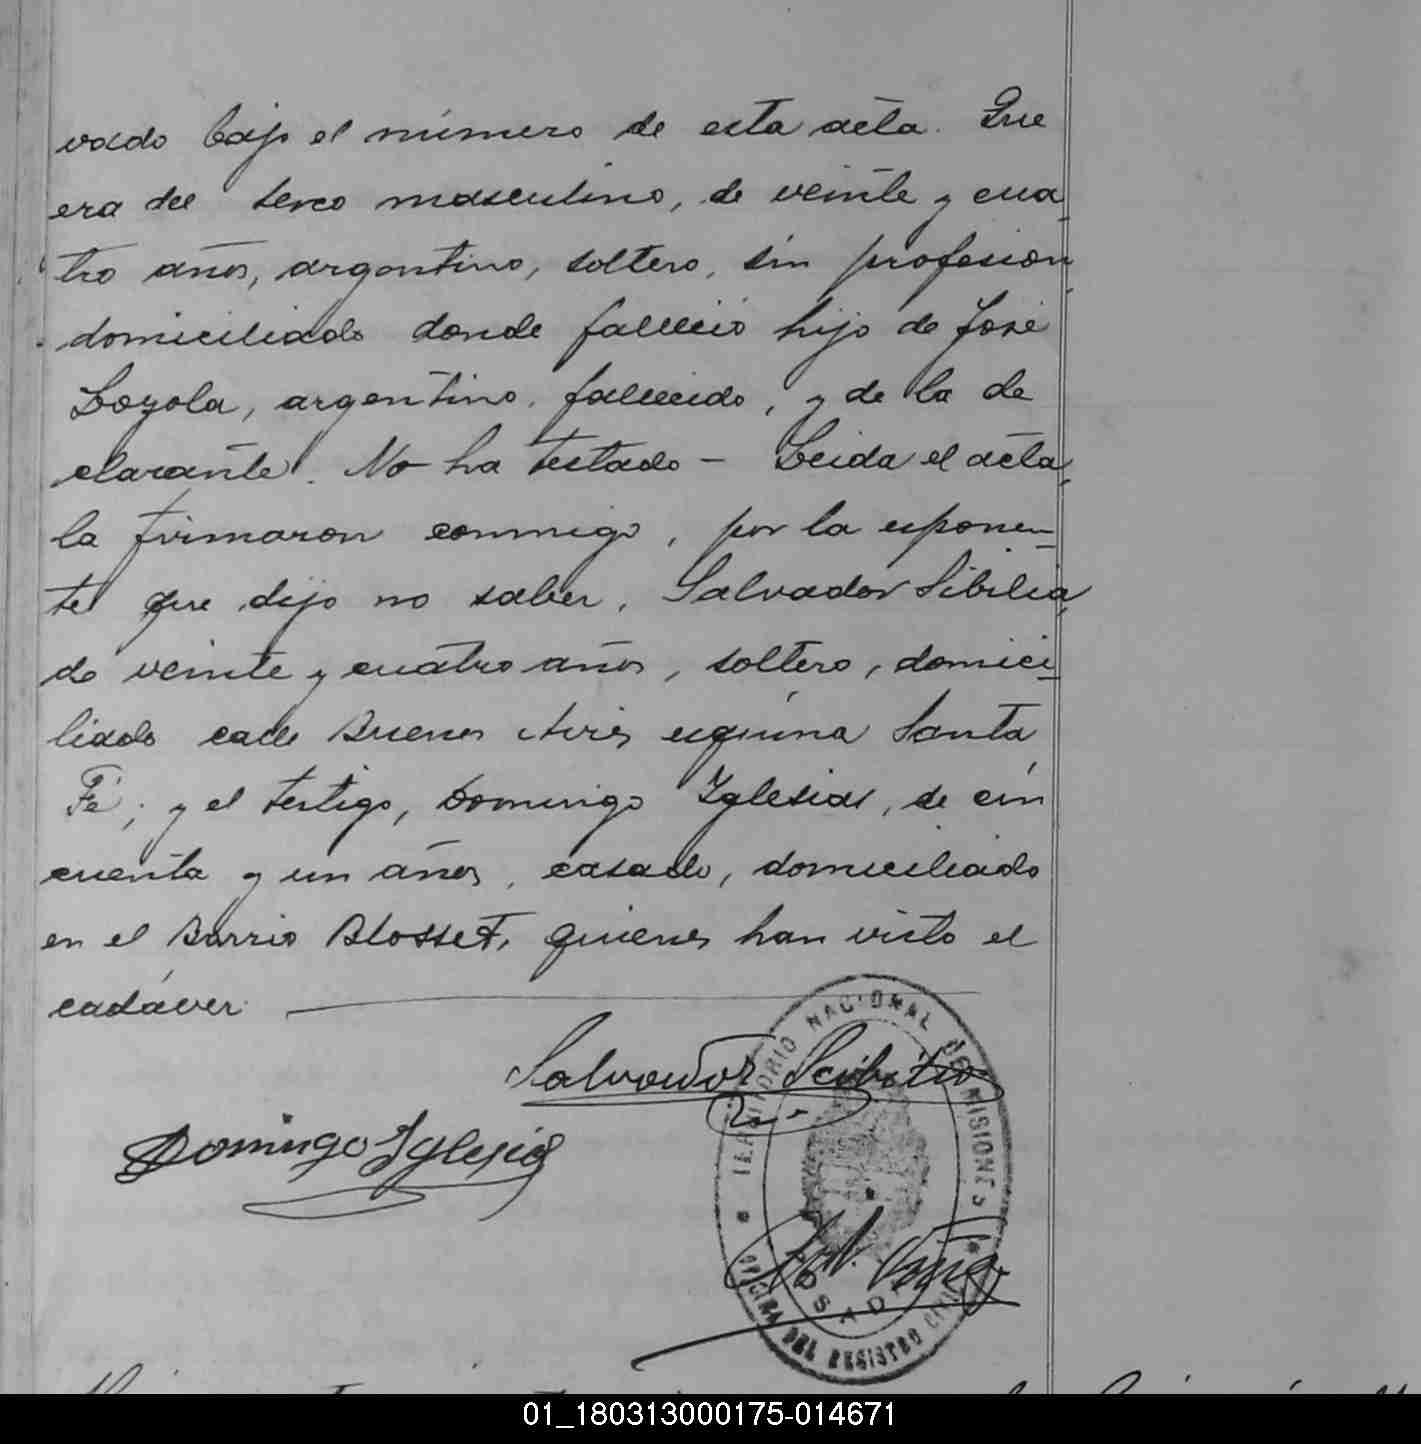 vado bajo el número de esta acta. Que
era del sexo masculino, de veinte y cua
tro años, argentino, soltero, sin profesion
domiciliado donde falleció hijo de José
Loyola, argentino, fallecido, y de la de
clarante. No ha testado - Leida el acta,
la firmaron conmigo, por la esponen-
te que dijo no saber, Salvador Sibilia,
de veinte y cuatro años, soltero, domici-
liado calle Buenos Aires esquina Santa
Fé; y el testigo, Domingo Iglesias, de cin
cuenta y un años, casado, domiciliado
en el Barrio Blosset, quienes han visto el
cadáver.
Salvador
Domingo Iglesias
TERRITORIO NACIONAL DE MISIONES
POSADAS
OFICINA DEL REGISTRO CIVIL
01_180313000175-014671